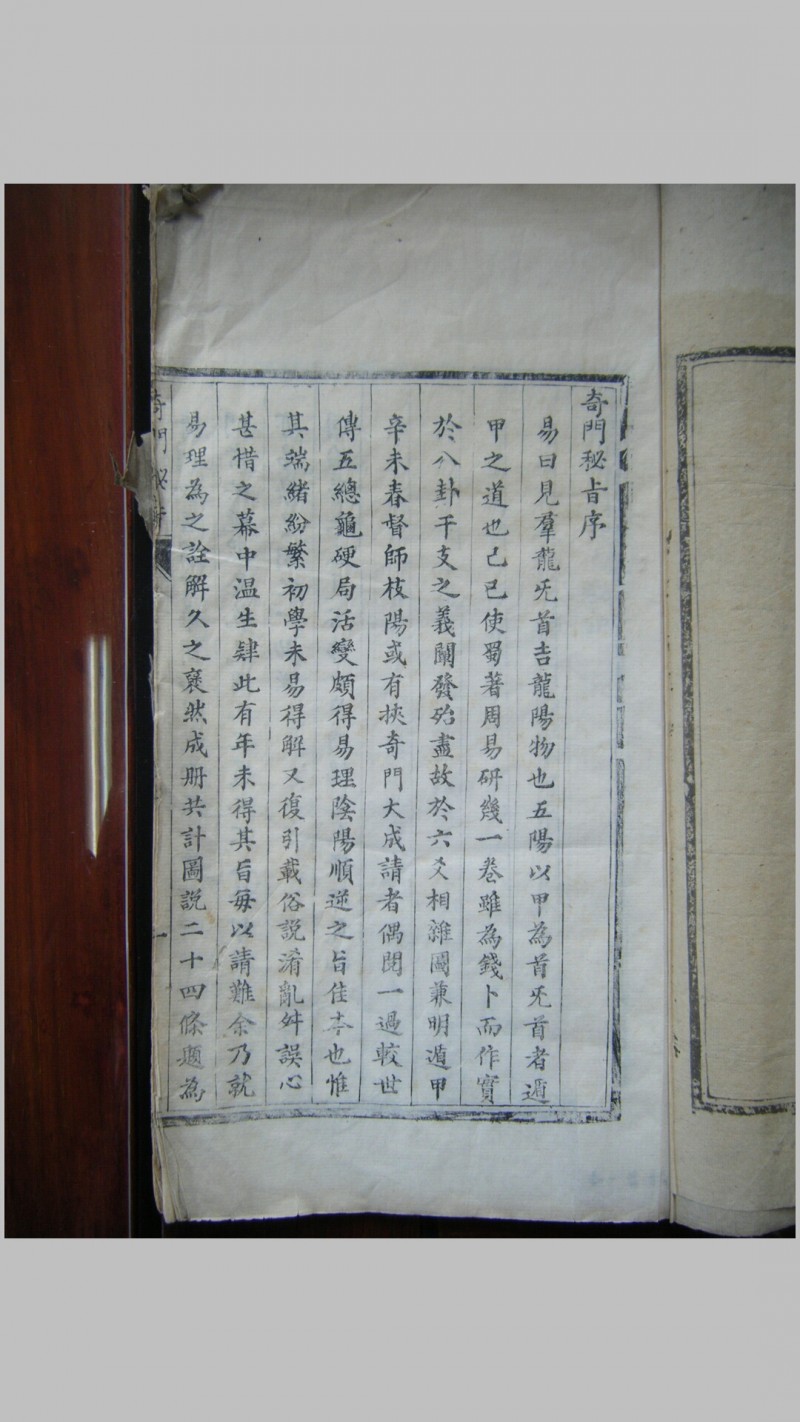 奇門秘旨序
易曰見羣龍旡首吉龍陽物也五陽以甲為首旡首者遁
甲之道也己巳使蜀著周易研幾一卷雖為錢卜而作實
於八卦干支之義闡發殆盡故於六爻相雜圖兼明遁甲
辛未春督師枝陽或有挾奇門大成請者偶閱一過較世
傳五總龜硬局活變頗得易理陰陽順逆之旨佳本也惟
其端緒紛繁初學未易得解又復引載俗説淆亂舛誤心
甚惜之幕中温生肄此有年未得其旨每以請難余乃就
易理為之詮解久之裒然成册共計圖説二十四條題為
奇門秘
一